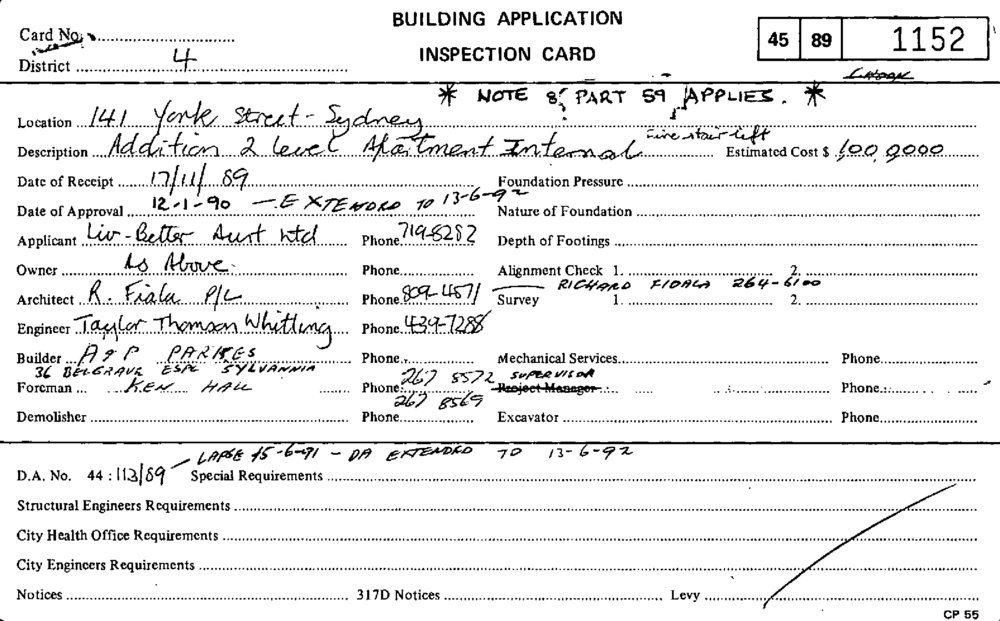 BUILDING APPLICATION
Card No.
45 89 1152
INSPECTION CARD
District 4
* NOTE 8; PART 59 APPLIES. *
Location 141 York Street - Sydney
Fire stair lift
Description Addition 2 level Apartment Internal Estimated Cost $ 600,000
Date of Receipt 17/11/89 Foundation Pressure
Date of Approval 12-1-90 — EXTENDED TO 13-6-92 Nature of Foundation
Applicant Liv-Better Aust Ltd Phone 719-8282 Depth of Footings
Owner As Above. Phone Alignment Check 1. 2.
RICHARD FIDALA 264-6100
Architect R. Fiala P/L Phone 809-4571 Survey 1. 2.
Engineer Taylor Thomson Whitting Phone 439-7288
Builder A & P PARKES Phone Mechanical Services Phone
36 BELGRAVE ESPL SYLVANNIA 267 5572 SUPERVISOR
Foreman KEN HALL Phone Project Manager Phone
267 8569
Demolisher Phone Excavator Phone
LAPSE 15-6-91 - DA EXTENDED TO 13-6-92
D.A. No. 44 : 113/89 Special Requirements
Structural Engineers Requirements
City Health Office Requirements
City Engineers Requirements
Notices 317D Notices Levy
CP 55